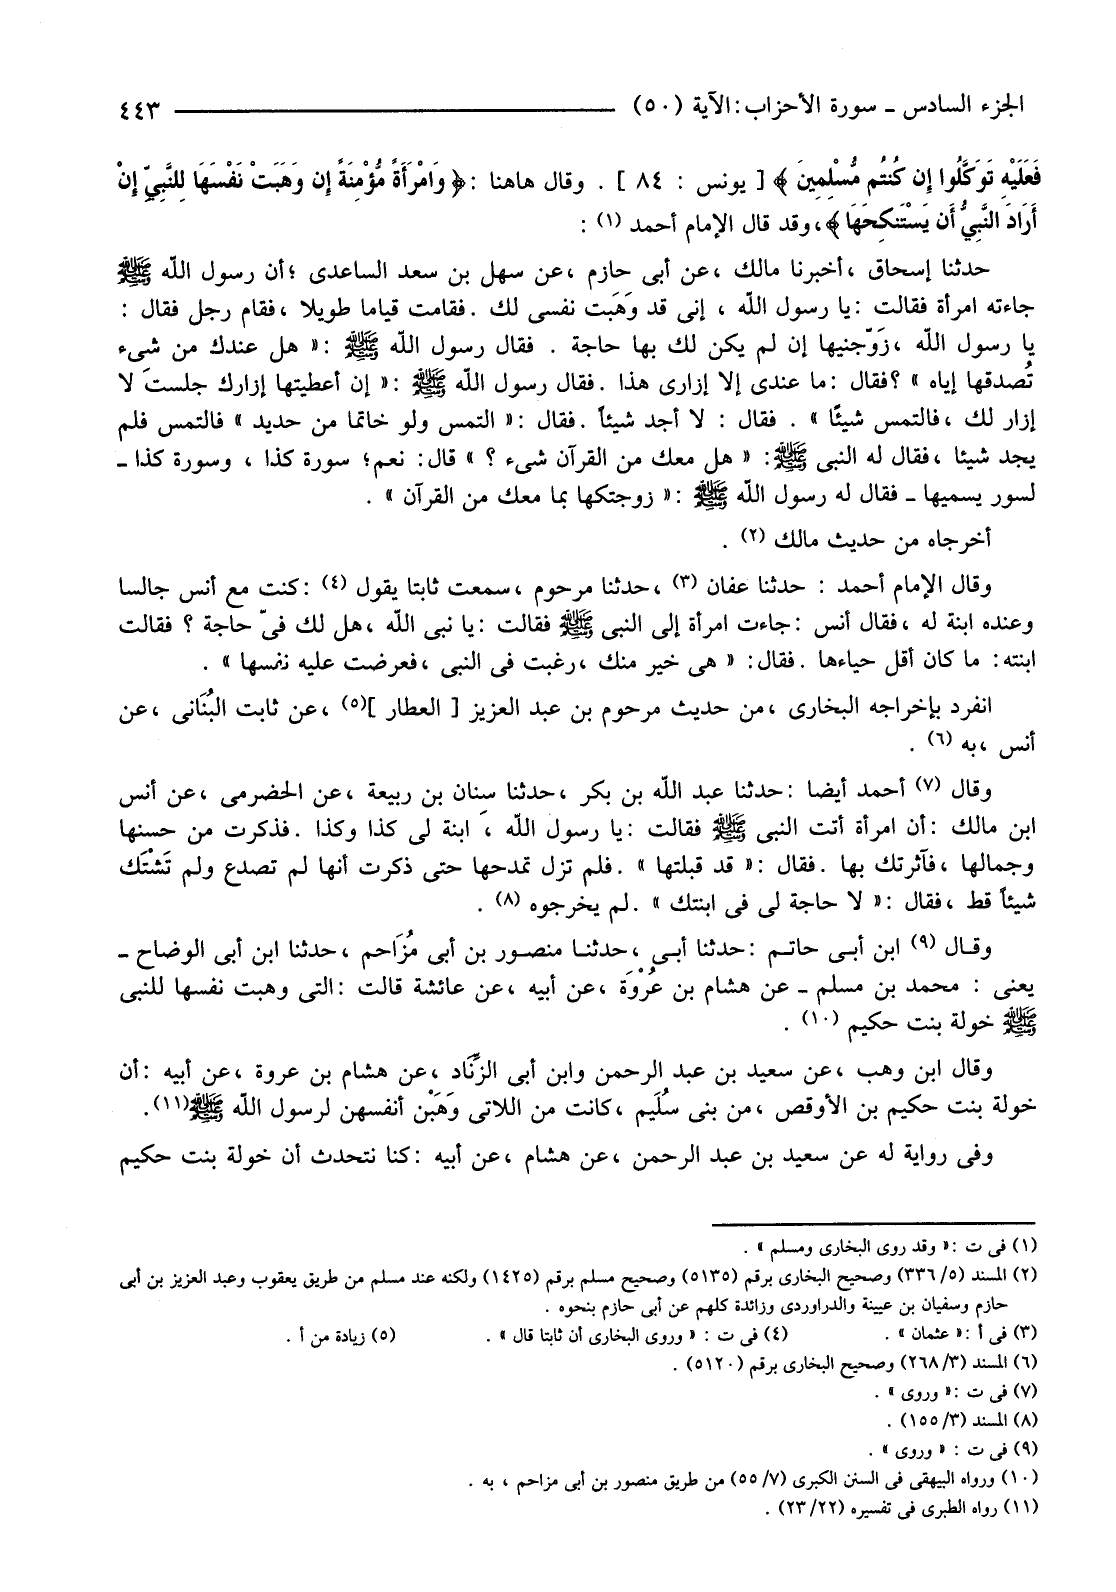 الجزء السادس ـ سورة الأحزاب : الآية (٥٠) ــــــــــــــــــــــــ ٤٤٣
فَعَلَيْهِ تَوَكَّلُوا إِن كُنتُم مُّسْلِمِينَ ﴾ [ يونس : ٨٤ ] . وقال هاهنا : ﴿ وَامْرَأَةً مُّؤْمِنَةً إِن وَهَبَتْ نَفْسَهَا لِلنَّبِيِّ إِنْ
أَرَادَ النَّبِيُّ أَن يَسْتَنكِحَهَا ﴾ ، وقد قال الإمام أحمد (١) :
حدثنا إسحاق ، أخبرنا مالك ، عن أبى حازم ، عن سهل بن سعد الساعدى ؛ أن رسول الله ﷺ
جاءته امرأة فقالت : يا رسول الله ، إنى قد وَهَبت نفسى لك . فقامت قياما طويلا ، فقام رجل فقال :
يا رسول الله ، زَوّجنيها إن لم يكن لك بها حاجة . فقال رسول الله ﷺ : « هل عندك من شىء
تُصدقها إياه » ؟ فقال : ما عندى إلا إزارى هذا . فقال رسول الله ﷺ : « إن أعطيتها إزارك جلستَ لا
إزار لك ، فالتمس شيئًا » . فقال : لا أجد شيئاً . فقال : « التمس ولو خاتما من حديد » فالتمس فلم
يجد شيئا ، فقال له النبى ﷺ : « هل معك من القرآن شىء ؟ » قال : نعم ؛ سورة كذا ، وسورة كذا ـ
لسور يسميها ـ فقال له رسول الله ﷺ : « زوجتكها بما معك من القرآن » .
أخرجاه من حديث مالك (٢) .
وقال الإمام أحمد : حدثنا عفان (٣) ، حدثنا مرحوم ، سمعت ثابتا يقول (٤) : كنت مع أنس جالسا
وعنده ابنة له ، فقال أنس : جاءت امرأة إلى النبى ﷺ فقالت : يا نبى الله ، هل لك فىّ حاجة ؟ فقالت
ابنته : ما كان أقل حياءها . فقال : « هى خير منك ، رغبت فى النبى ، فعرضت عليه نفسها » .
انفرد بإخراجه البخارى ، من حديث مرحوم بن عبد العزيز [ العطار ](٥) ، عن ثابت البُنَانى ، عن
أنس ، به (٦) .
وقال (٧) أحمد أيضا : حدثنا عبد الله بن بكر ، حدثنا سِنَان بن ربيعة ، عن الحضرمى ، عن أنس
ابن مالك : أن امرأة أتت النبى ﷺ فقالت : يا رسول الله ، ابنة لى كذا وكذا . فذكرت من حسنها
وجمالها ، فآثرتك بها . فقال : « قد قبلتها » . فلم تزل تمدحها حتى ذكرت أنها لم تصدع ولم تَشْتَك
شيئاً قط ، فقال : « لا حاجة لى فى ابنتك » . لم يخرجوه (٨) .
وقال (٩) ابن أبى حاتم : حدثنا أبى ، حدثنا منصور بن أبى مُزَاحم ، حدثنا ابن أبى الوضاح ـ
يعنى : محمد بن مسلم ـ عن هشام بن عُرْوَة ، عن أبيه ، عن عائشة قالت : التى وهبت نفسها للنبى
ﷺ خولة بنت حكيم (١٠) .
وقال ابن وهب ، عن سعيد بن عبد الرحمن وابن أبى الزِّنَاد ، عن هشام بن عروة ، عن أبيه : أن
خولة بنت حكيم بن الأوقص ، من بنى سُلَيم ، كانت من اللاتى وَهَبْن أنفسهن لرسول الله ﷺ(١١).
وفى رواية له عن سعيد بن عبد الرحمن ، عن هشام ، عن أبيه : كنا نتحدث أن خولة بنت حكيم
(١) فى ت : « وقد روى البخارى ومسلم » .
(٢) المسند (٥/ ٣٣٦) وصحيح البخارى برقم (٥١٣٥) وصحيح مسلم برقم (١٤٢٥) ولكنه عند مسلم من طريق يعقوب وعبد العزيز بن أبى
حازم وسفيان بن عيينة والدراوردى وزائدة كلهم عن أبى حازم بنحوه .
(٣) فى أ : « عثمان » . (٤) فى ت : « وروى البخارى أن ثابتا قال » . (٥) زيادة من أ .
(٦) المسند (٣/ ٢٦٨) وصحيح البخارى برقم (٥١٢٠) .
(٧) فى ت : « وروى » .
(٨) المسند (٣/ ١٥٥) .
(٩) فى ت : « وروى » .
(١٠) ورواه البيهقى فى السنن الكبرى (٧/ ٥٥) من طريق منصور بن أبى مزاحم ، به .
(١١) رواه الطبرى فى تفسيره (٢٢/ ٢٣) .